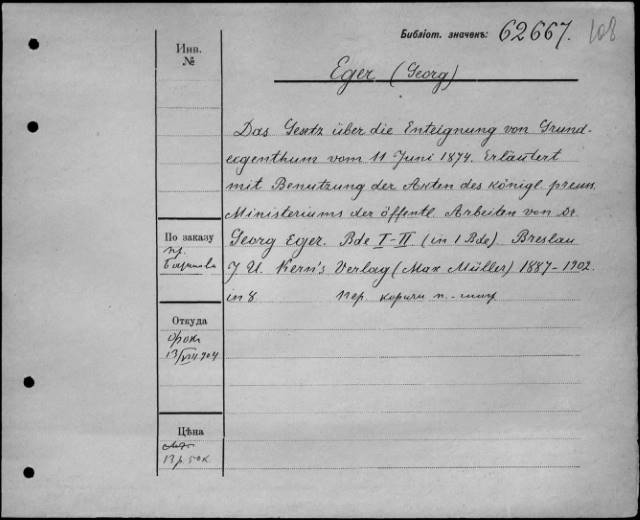 Библіот. значенъ: 62667. 108
Инв.
№
Eger (Georg)
Das Gesetz über die Enteignung von Grund-
eigenthum vom 11 Juni 1874. Erläutert
mit Benutzung der Akten des königl. preuss.
Ministeriums der öffentl. Arbeiten von Dr
Georg Eger. Bde I-II (in 1 Bde) Breslau
J. U. Kern's Verlag (Max Müller) 1887-1902.
in 8 пер.
По заказу
пр.
Откуда
13/VIII 904
Цѣна
13 р. 50 к